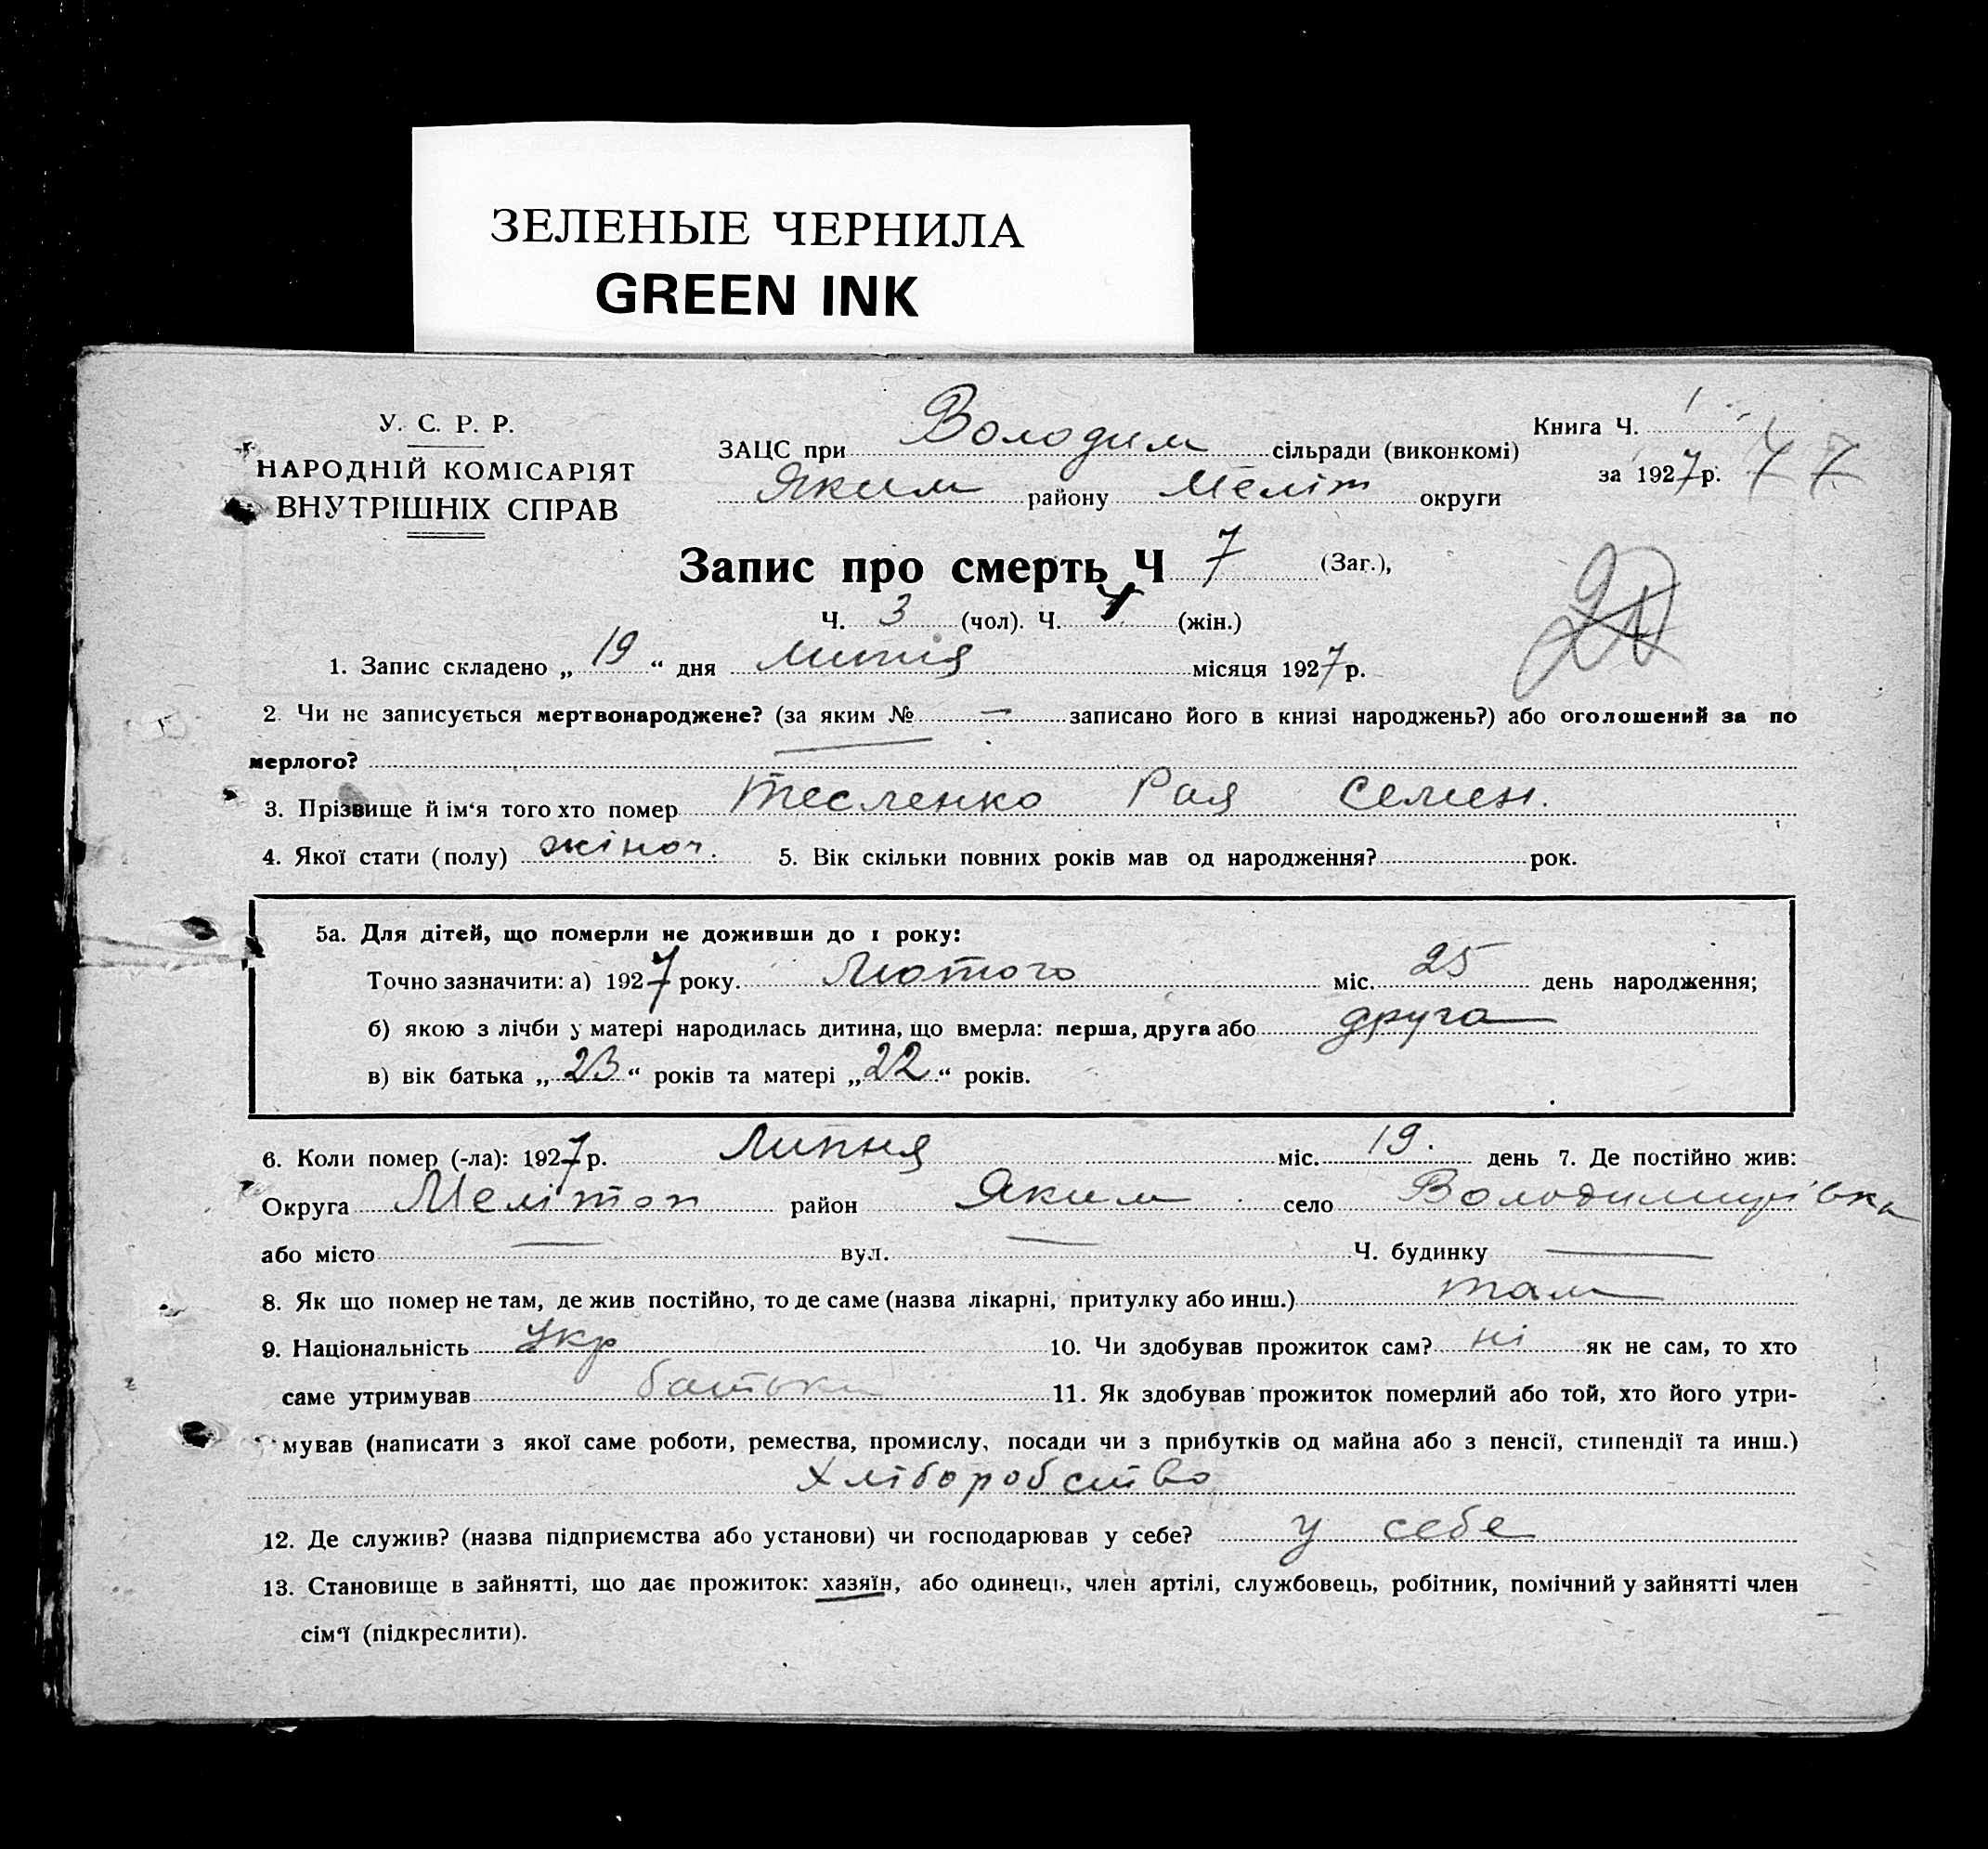 ЗЕЛЕНЫЕ ЧЕРНИЛА
GREEN INK
У. С. Р. Р.
НАРОДНІЙ КОМІСАРІЯТ
ВНУТРІШНІХ СПРАВ
ЗАЦС при Володим сільради (виконкомі)
Яким району Меліт округи
Книга Ч. 1
за 1927 р. 47
Запис про смерть Ч 7 (Заг.),
Ч. 3 (чол). Ч. 4 (жін.)
1. Запис складено „ 19 “ дня липня місяця 1927 р.
2. Чи не записується мертвонароджене? (за яким № — записано його в книзі народжень?) або оголошений за по
мерлого? —
3. Прізвище й ім‘я того хто помер Тесленко Рая Семен.
4. Якої стати (полу) жіноч. 5. Вік скільки повних років мав од народження? рок.
5а. Для дітей, що померли не доживши до 1 року:
Точно зазначити: а) 1927 року. Лютого міс. 25 день народження;
б) якою з лічби у матері народилась дитина, що вмерла: перша, друга або друга
в) вік батька „ 23 “ років та матері „ 22 “ років.
6. Коли помер (-ла): 1927 р. Липня міс. 19. день 7. Де постійно жив:
Округа Мелітоп район Яким село Володимирівка
або місто — вул. — Ч. будинку —
8. Як що помер не там, де жив постійно, то де саме (назва лікарні, притулку або инш.) там
9. Національність Укр 10. Чи здобував прожиток сам? ні як не сам, то хто
саме утримував батьки 11. Як здобував прожиток померлий або той, хто його утри-
мував (написати з якої саме роботи, ремества, промислу, посади чи з прибутків од майна або з пенсії, стипендії та инш.)
Хліборобство
12. Де служив? (назва підприємства або установи) чи господарював у себе? у себе
13. Становище в зайнятті, що дає прожиток: хазяїн, або одинець, член артілі, службовець, робітник, помічний у зайнятті член
сім‘ї (підкреслити).